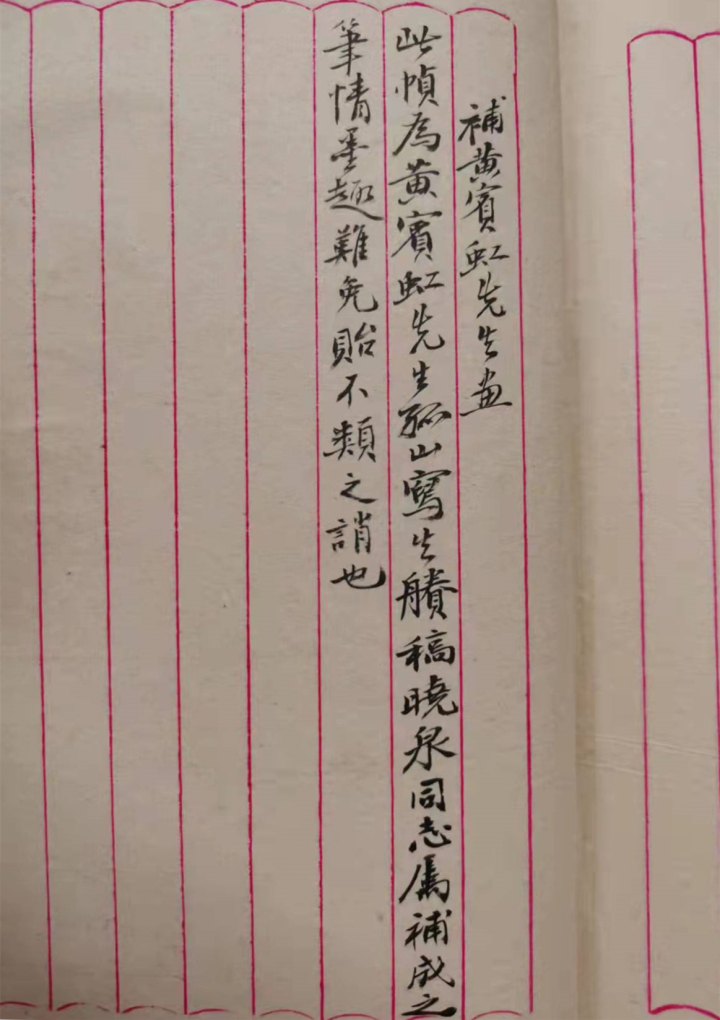 補黄賓虹先生畫
此幀為黄賓虹先生孤山寫生賸稿曉泉同志属補成之
筆情墨趣難免貽不類之誚也